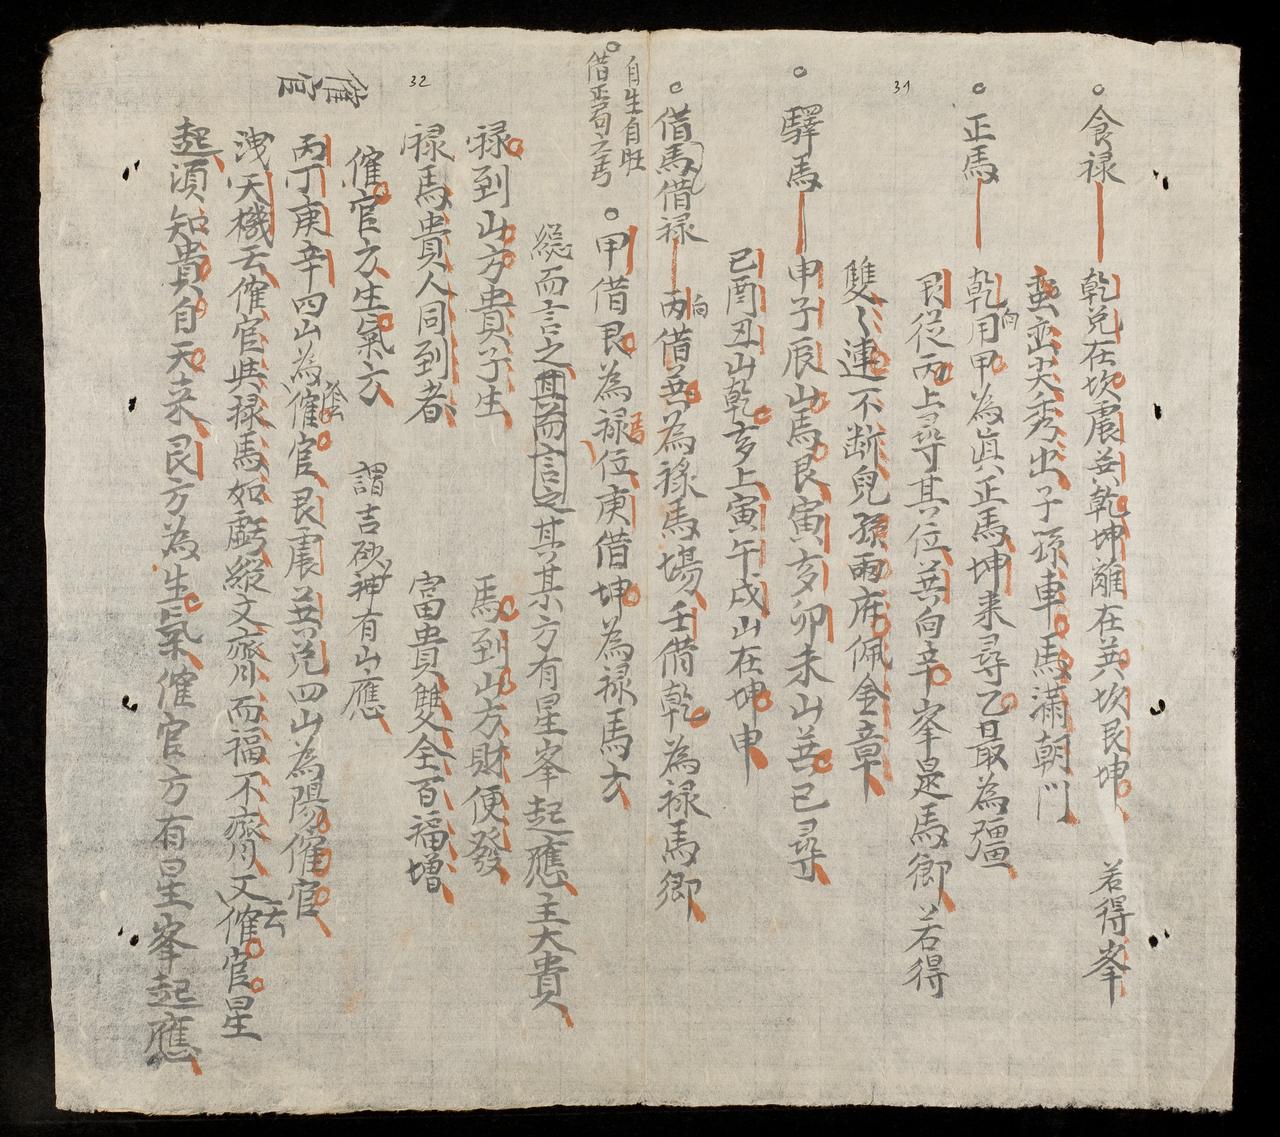 食祿
乾兌在坎震㢲乾坤離在㢲坎艮坤 若得峯
巒尖秀出子孫車馬滿朝門
31
正馬
乾向用甲為眞正馬坤来尋乙最為彊
艮從丙上尋其位㢲向辛峯是馬鄉 若得
雙〻連不断兒孫兩府佩金章
驛馬
申子辰山馬艮寅亥卯未山㢲巳尋
巳酉丑山乾亥上寅午戌山在坤申
借馬借禄
丙向借㢲為祿馬塲壬借乾為禄馬鄉
自生自旺
借正馬之方
甲借艮為禄馬位庚借坤為禄馬方
緫而言之其而言之其某方有星峯起應主大貴
32
禄到山方貴子生 馬到山方財便發
禄馬貴人同到者 富貴雙全百福增
催官
催官方生氣方 謂吉砂神有山應
丙丁庚辛四山為陰催官艮震㢲兌四山為陽催官
洩天機云催官與祿馬如虧縱文齊而福不齊又云催官星
起須知貴自天来艮方為生氣催官方有星峯起應